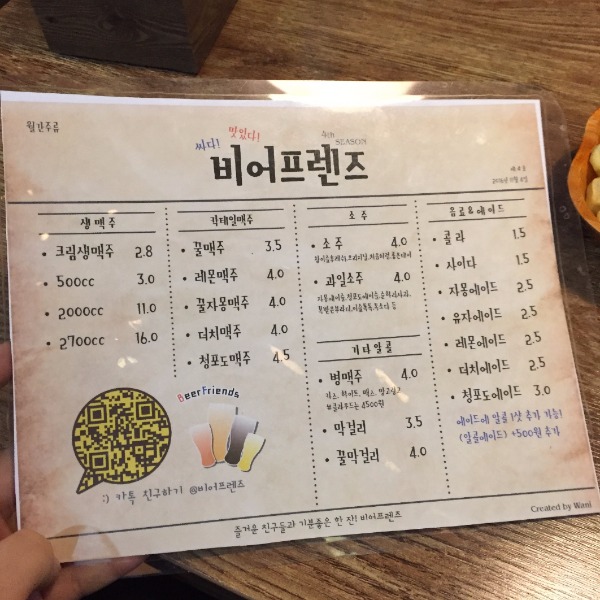 월간주류
싸다! 맛있다! 4th SEASON
비어프렌즈
제4호
생맥주
• 크림생맥주 2.8
• 500cc 3.0
• 2000cc 11.0
• 2700cc 16.0
칵테일맥주
• 꿀맥주 3.5
• 레몬맥주 4.0
• 꿀자몽맥주 4.0
• 더치맥주 4.0
• 청포도맥주 4.5
소주
• 소주 4.0
• 과일소주 4.0
기타알콜
• 병맥주 4.0
• 막걸리 3.5
• 꿀막걸리 4.0
음료&에이드
• 콜라 1.5
• 사이다 1.5
• 자몽에이드 2.5
• 유자에이드 2.5
• 레몬에이드 2.5
• 더치에이드 2.5
• 청포도에이드 3.0
에이드에 알콜 1샷 추가 가능!
(알콜에이드) +500원 추가
BeerFriends
:) 카톡 친구하기 @비어프렌즈
즐거운 친구들과 기분좋은 한 잔! 비어프렌즈
Created by Wani